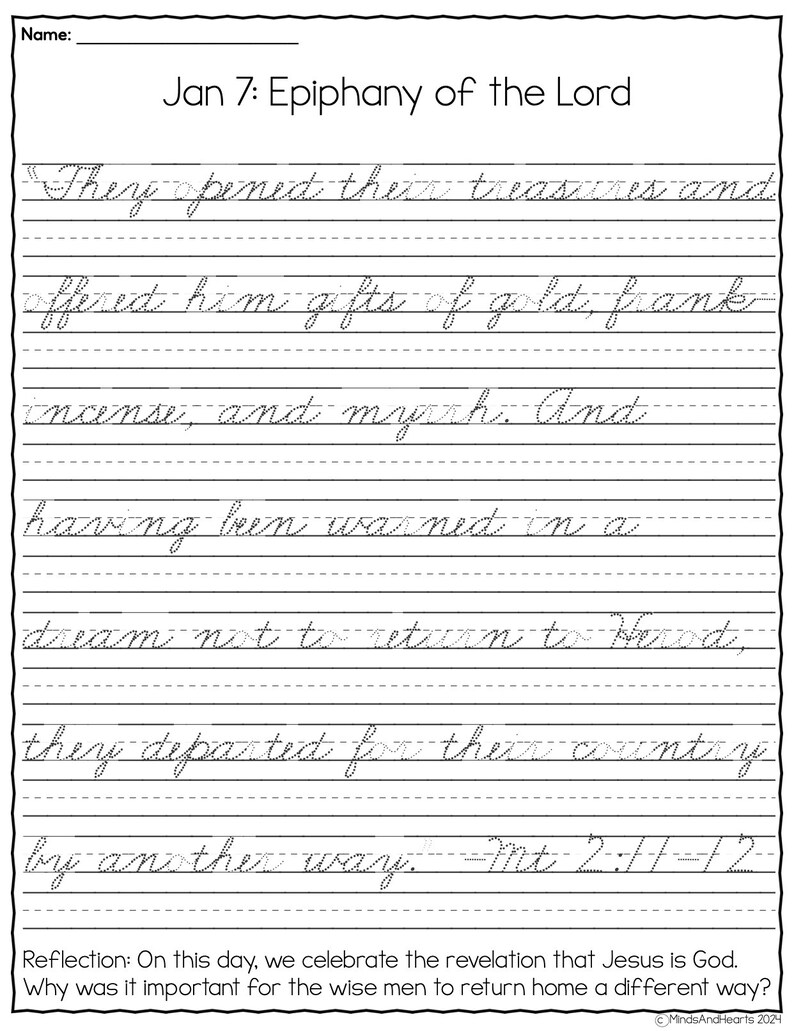 Name:
Jan 7: Epiphany of the Lord
"They opened their treasures and
offered him gifts of gold, frank-
incense, and myrrh. And
having been warned in a
dream not to return to Herod,
they departed for their country
by another way." -Mt 2:11-12
Reflection: On this day, we celebrate the revelation that Jesus is God.
Why was it important for the wise men to return home a different way?
©MindsAndHearts 2024